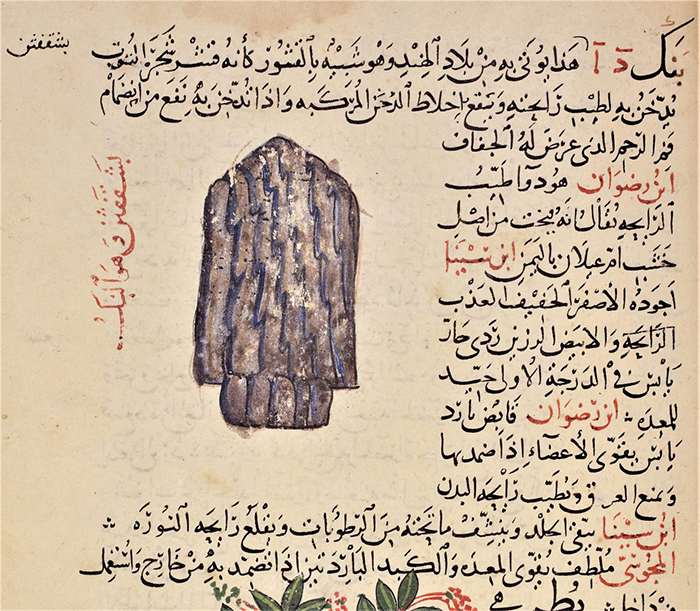 بشقفثن
بنك د آ هذا يوتى به من بلاد الهند وهو شبيه بالقشور كأنه قشر شجر التوت
يدخن به لطيب رايحته وينفع اخلاط الدخن المركبه واذا تدخن به نفع من انضمام
فم الرحم الذى عرض له الجفاف
ابن رضوان هو دوا طيب
الرايحه يقال انه ينحت من اصل
خشب ام غيلان باليمن ابن سينا
اجوده الاصفر الخفيف العذب
الرايحه والابيض الرزين ردى حار
يابس فى الدرجة الاولى جيد
للمعده ابن رضوان قابض بارد
يابس يقوى الأعضاء اذا ضمد بها
ويمنع العرق ويطيب رايحه البدن
ابن سينا ينقى الجلد وينشف ما تحته من الرطوبات ويقلع رايحه النوره
المجوسى ملطف يقوى المعده والكبد الباردتين اذا تضمد به من خارج واستعمل
بشقفثن وهو البنك